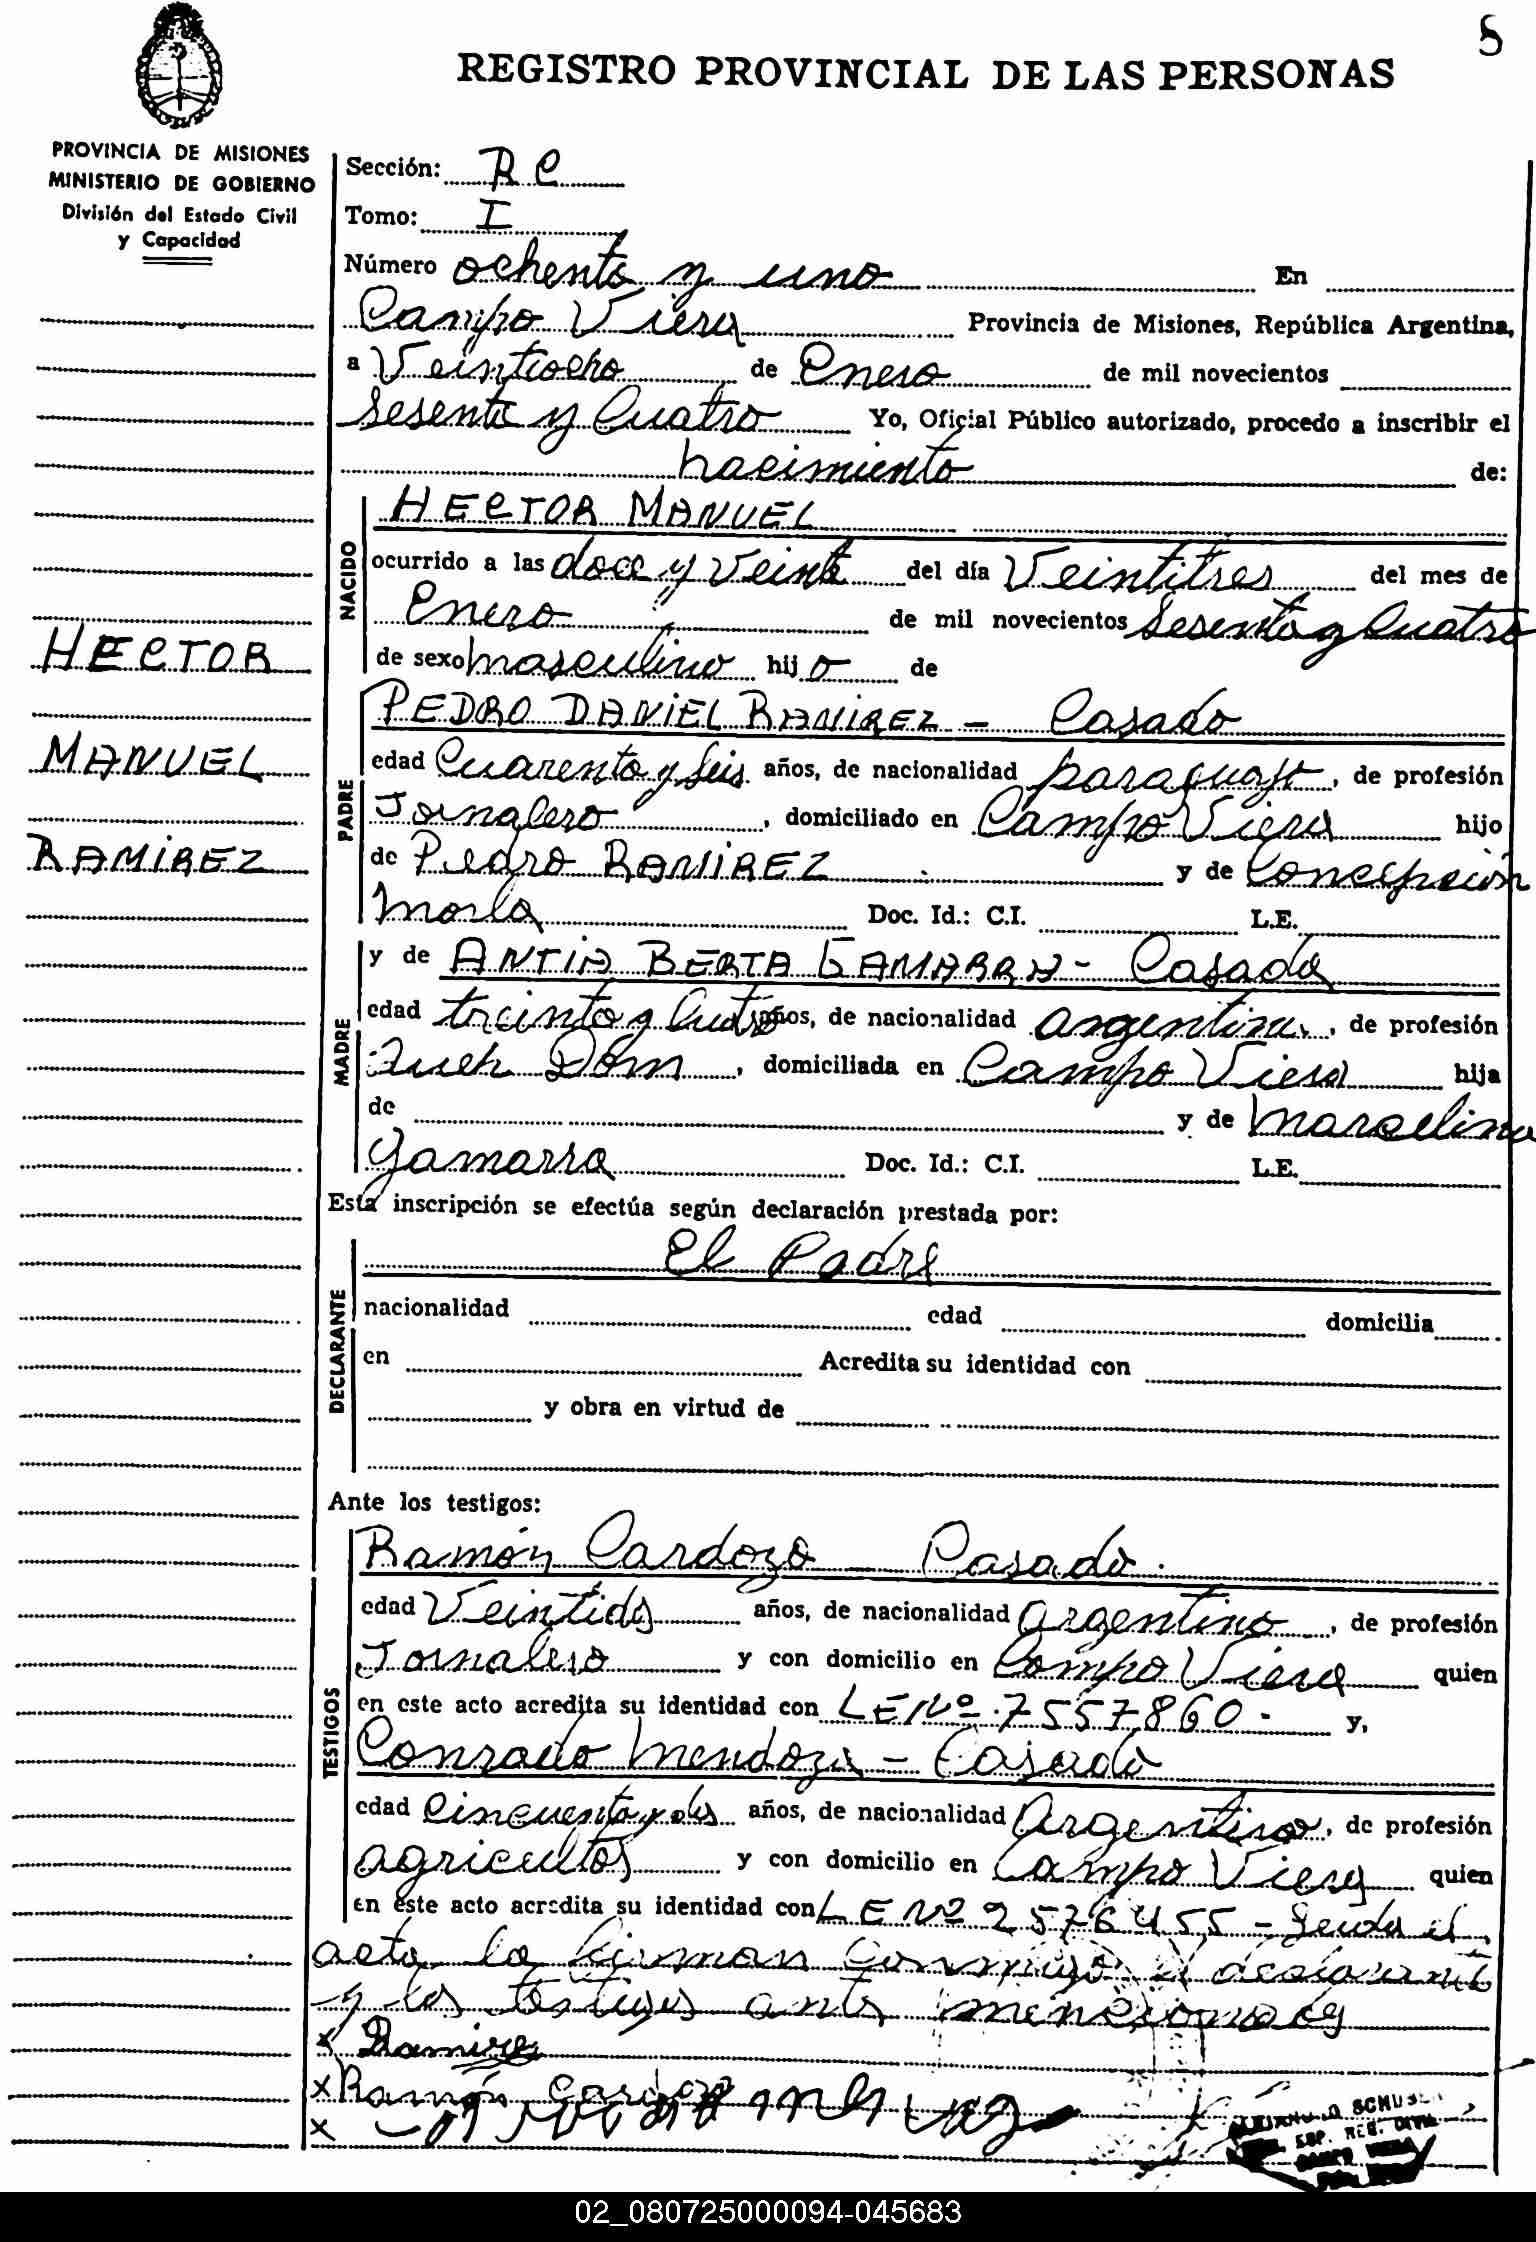 8
REGISTRO PROVINCIAL DE LAS PERSONAS
PROVINCIA DE MISIONES
MINISTERIO DE GOBIERNO
División del Estado Civil
y Capacidad
HECTOR
MANUEL
RAMIREZ
Sección: RC
Tomo: I
Número ochenta y uno En
Campo Viera Provincia de Misiones, República Argentina,
a Veintiocho de Enero de mil novecientos
Sesenta y Cuatro Yo, Oficial Público autorizado, procedo a inscribir el
nacimiento de:
NACIDO
HECTOR MANUEL
ocurrido a las doce y veinte del día Veintitres del mes de
Enero de mil novecientos Sesenta y Cuatro
de sexo masculino hijo de
PADRE
PEDRO DANIEL RAMIREZ - Casado
edad Cuarenta y seis años, de nacionalidad paraguayo, de profesión
Jornalero, domiciliado en Campo Viera hijo
de Pedro RAMIREZ y de Concepción
Morla Doc. Id.: C.I. L.E.
MADRE
y de ANTIA BERTA GAMARRA - Casada
edad treinta y Cuatro años, de nacionalidad argentina, de profesión
Queh Dom, domiciliada en Campo Viera hija
de y de Marcelina
Gamarra Doc. Id.: C.I. L.E.
Esta inscripción se efectúa según declaración prestada por:
DECLARANTE
El Padre
nacionalidad edad domicilia
en Acredita su identidad con
y obra en virtud de
Ante los testigos:
TESTIGOS
Ramón Cardozo Casado.
edad Veintidos años, de nacionalidad Argentino, de profesión
Jornalero y con domicilio en Campo Viera quien
en este acto acredita su identidad con LE Nº 7557860.- y,
Conrado Mendoza - Casado
edad Cincuenta y dos años, de nacionalidad Argentino, de profesión
agricultor y con domicilio en Campo Viera quien
en este acto acredita su identidad con LE Nº 2576455 - Leida el
acta la firman conmigo el declarante
y los testigos antes mencionados
x Ramirez
x Ramón Cardozo
x
SUP. REG. CIVIL
CAMPO VIERA
02_080725000094-045683